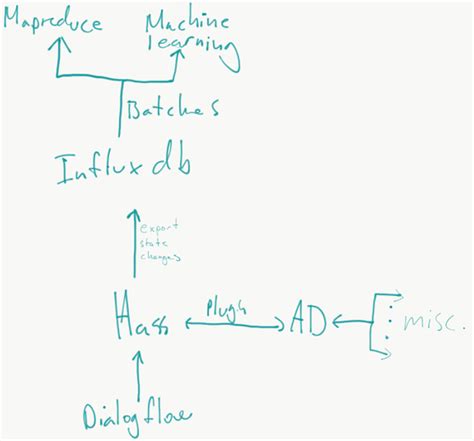 Mapreduce
Machine
learning
Batches
Influx db
export
state
changes
Hass
Plugs
AD
misc.
Dialogflow